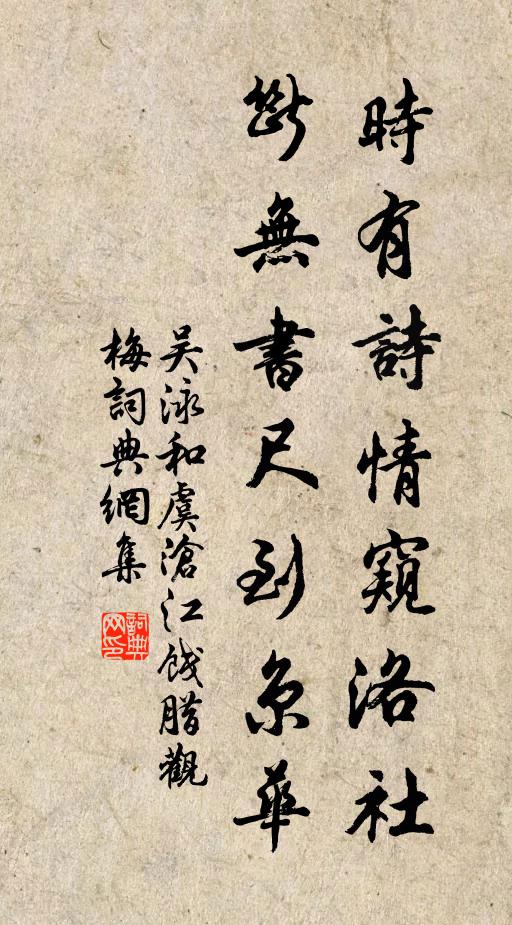 時有詩情窺洛社
斷無書尺到京華
吴泳和虞滄江餞腊觀
梅詞典網集
詞典网印